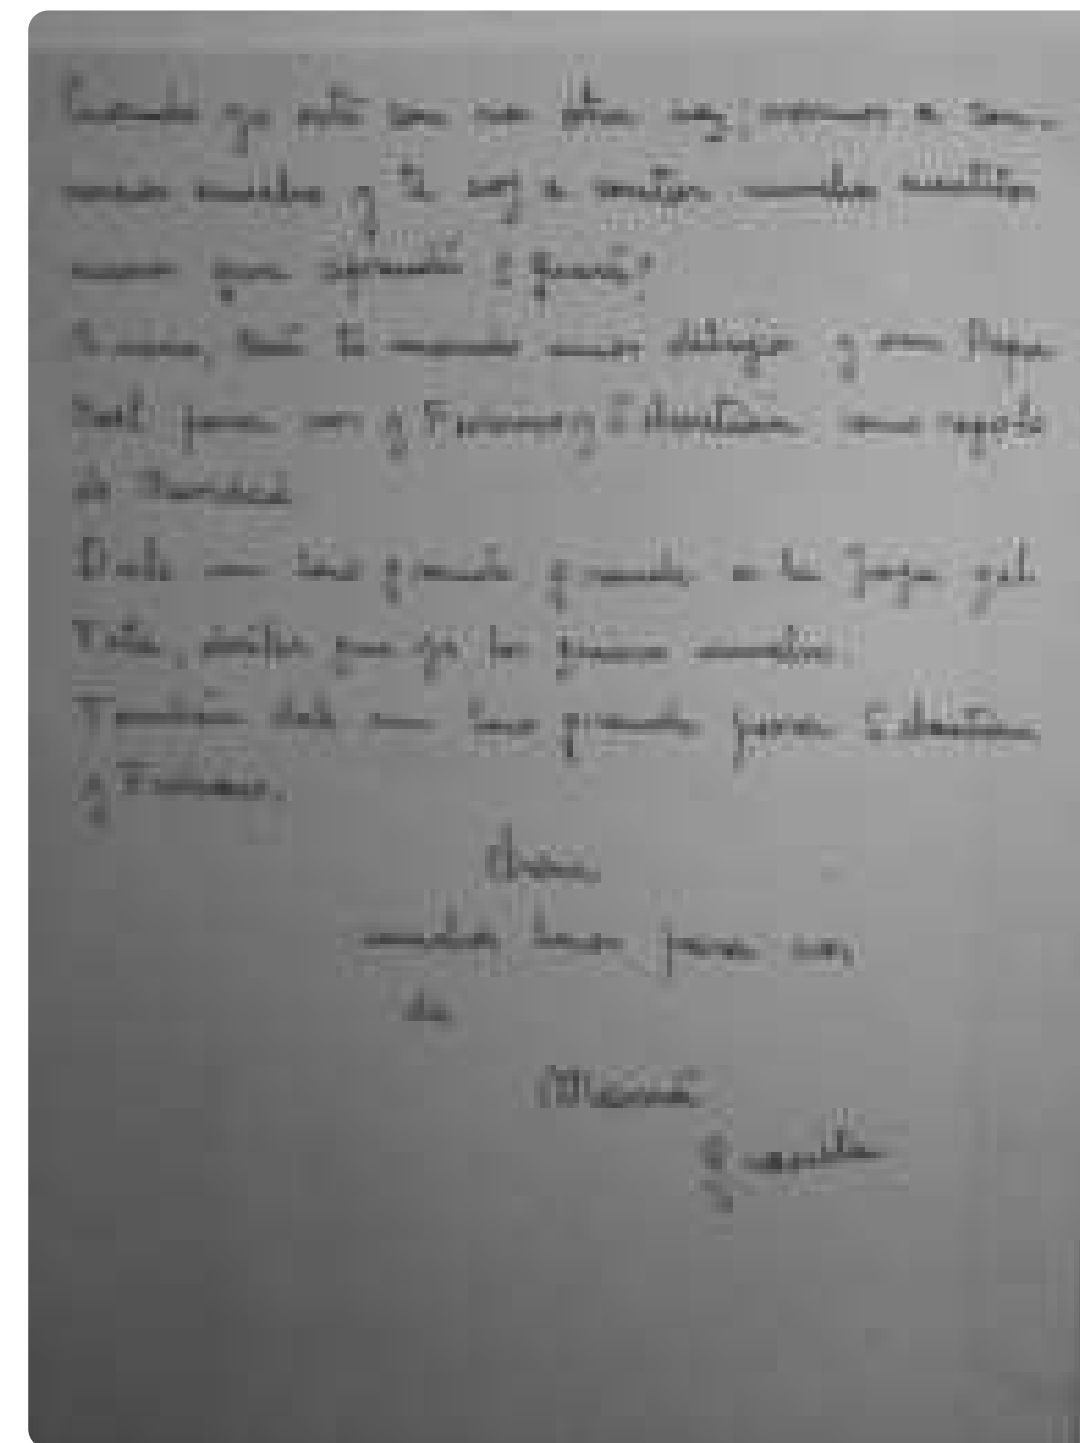 Cuando yo esté con vos otra vez, vamos a con-
versar mucho y te voy a contar muchos cuentitos
nuevos que aprendí ¿querés?
te mando unos dibujos y un Papá
Noel para vos y y Sebastián como regalo
de Navidad
Dale un beso grande grande a la y el
Tata, que yo los quiero mucho.
También dale un beso grande para Sebastián
y
Chau
muchos besos para vos
de
Mamá